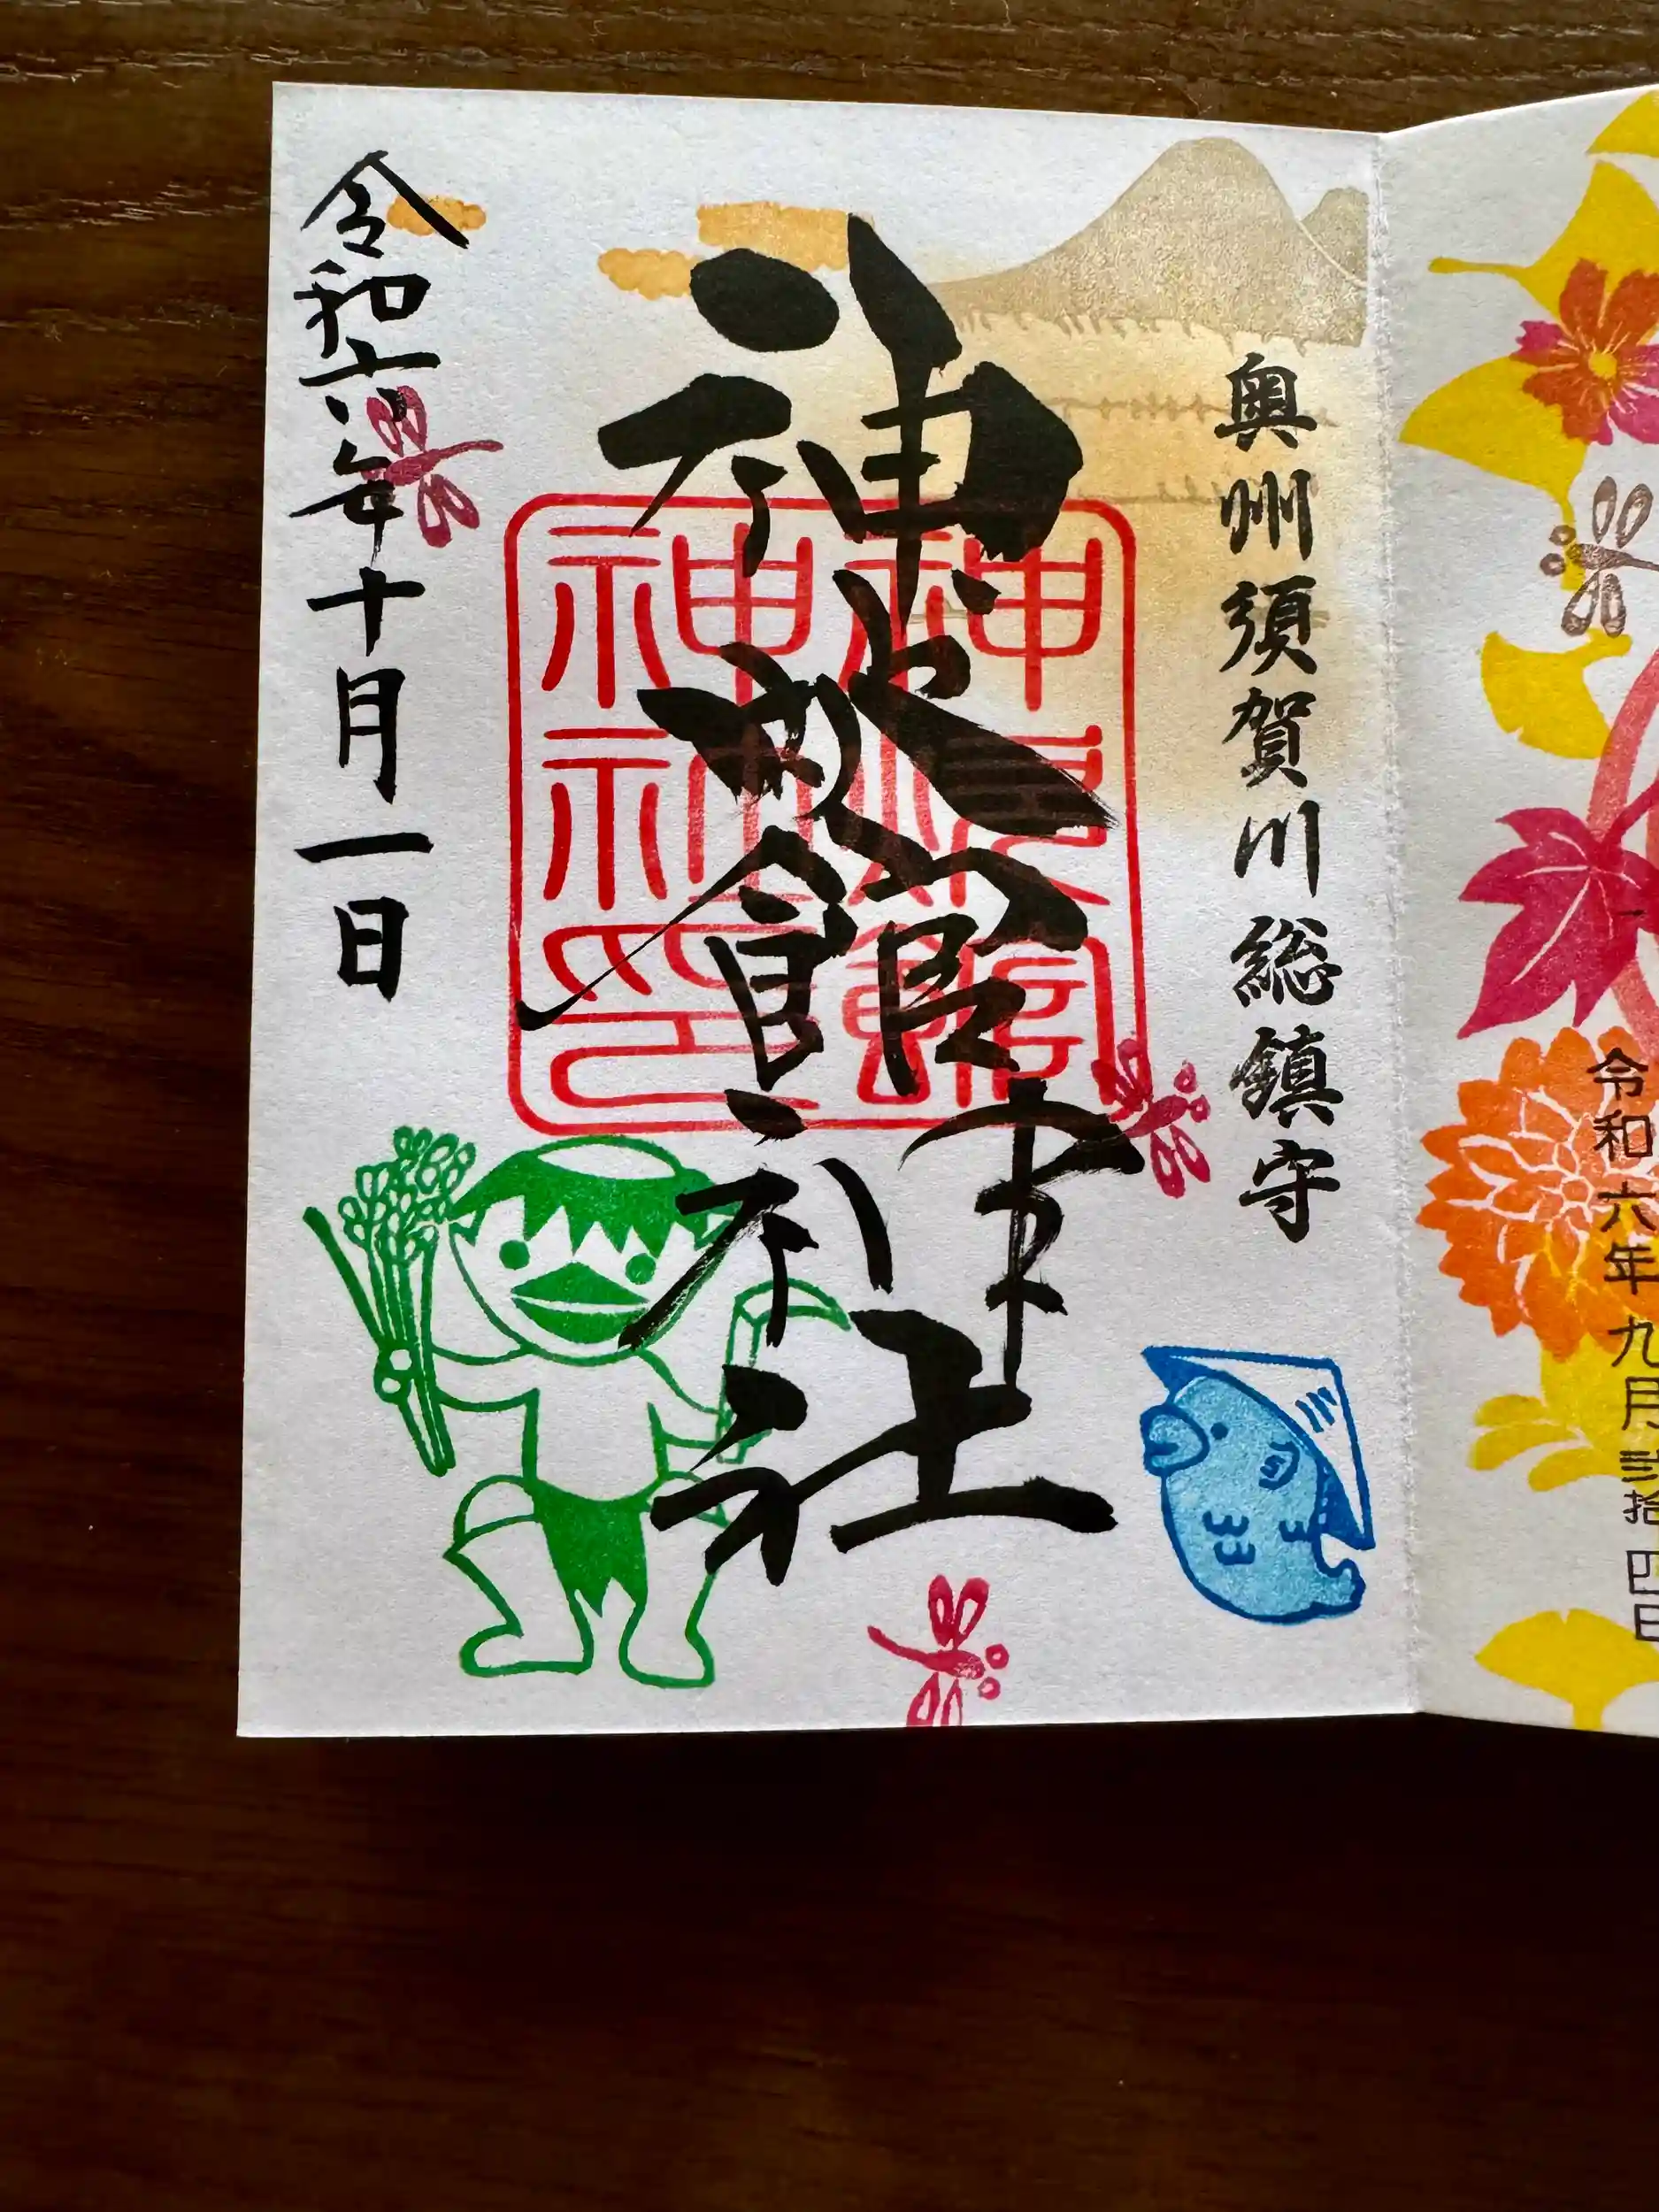 令和六年九月弐拾四日
奥州須賀川総鎮守
神炊館神社
神炊館
神社印
令和六年十月一日